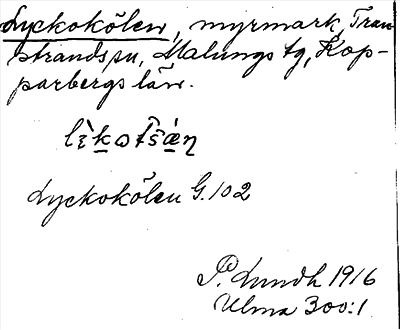 Lyckokölen, myrmark, Tran-
strands sn, Malungs tg, Kop-
parbergs län.
Lyckokölen G.102
P. Lundh 1916
Ulma 300:1